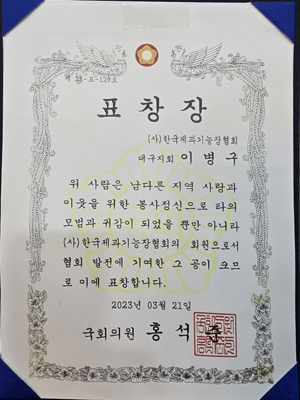 제 23-표-129호
표창장
(사)한국제과기능장협회
대구지회 이병구
위 사람은 남다른 지역 사랑과
이웃을 위한 봉사정신으로 타의
모범과 귀감이 되었을 뿐만 아니라
(사)한국제과기능장협회의 회원으로서
협회 발전에 기여한 그 공이 크므
로 이에 표창합니다.
2023년 03월 21일
국회의원 홍석준